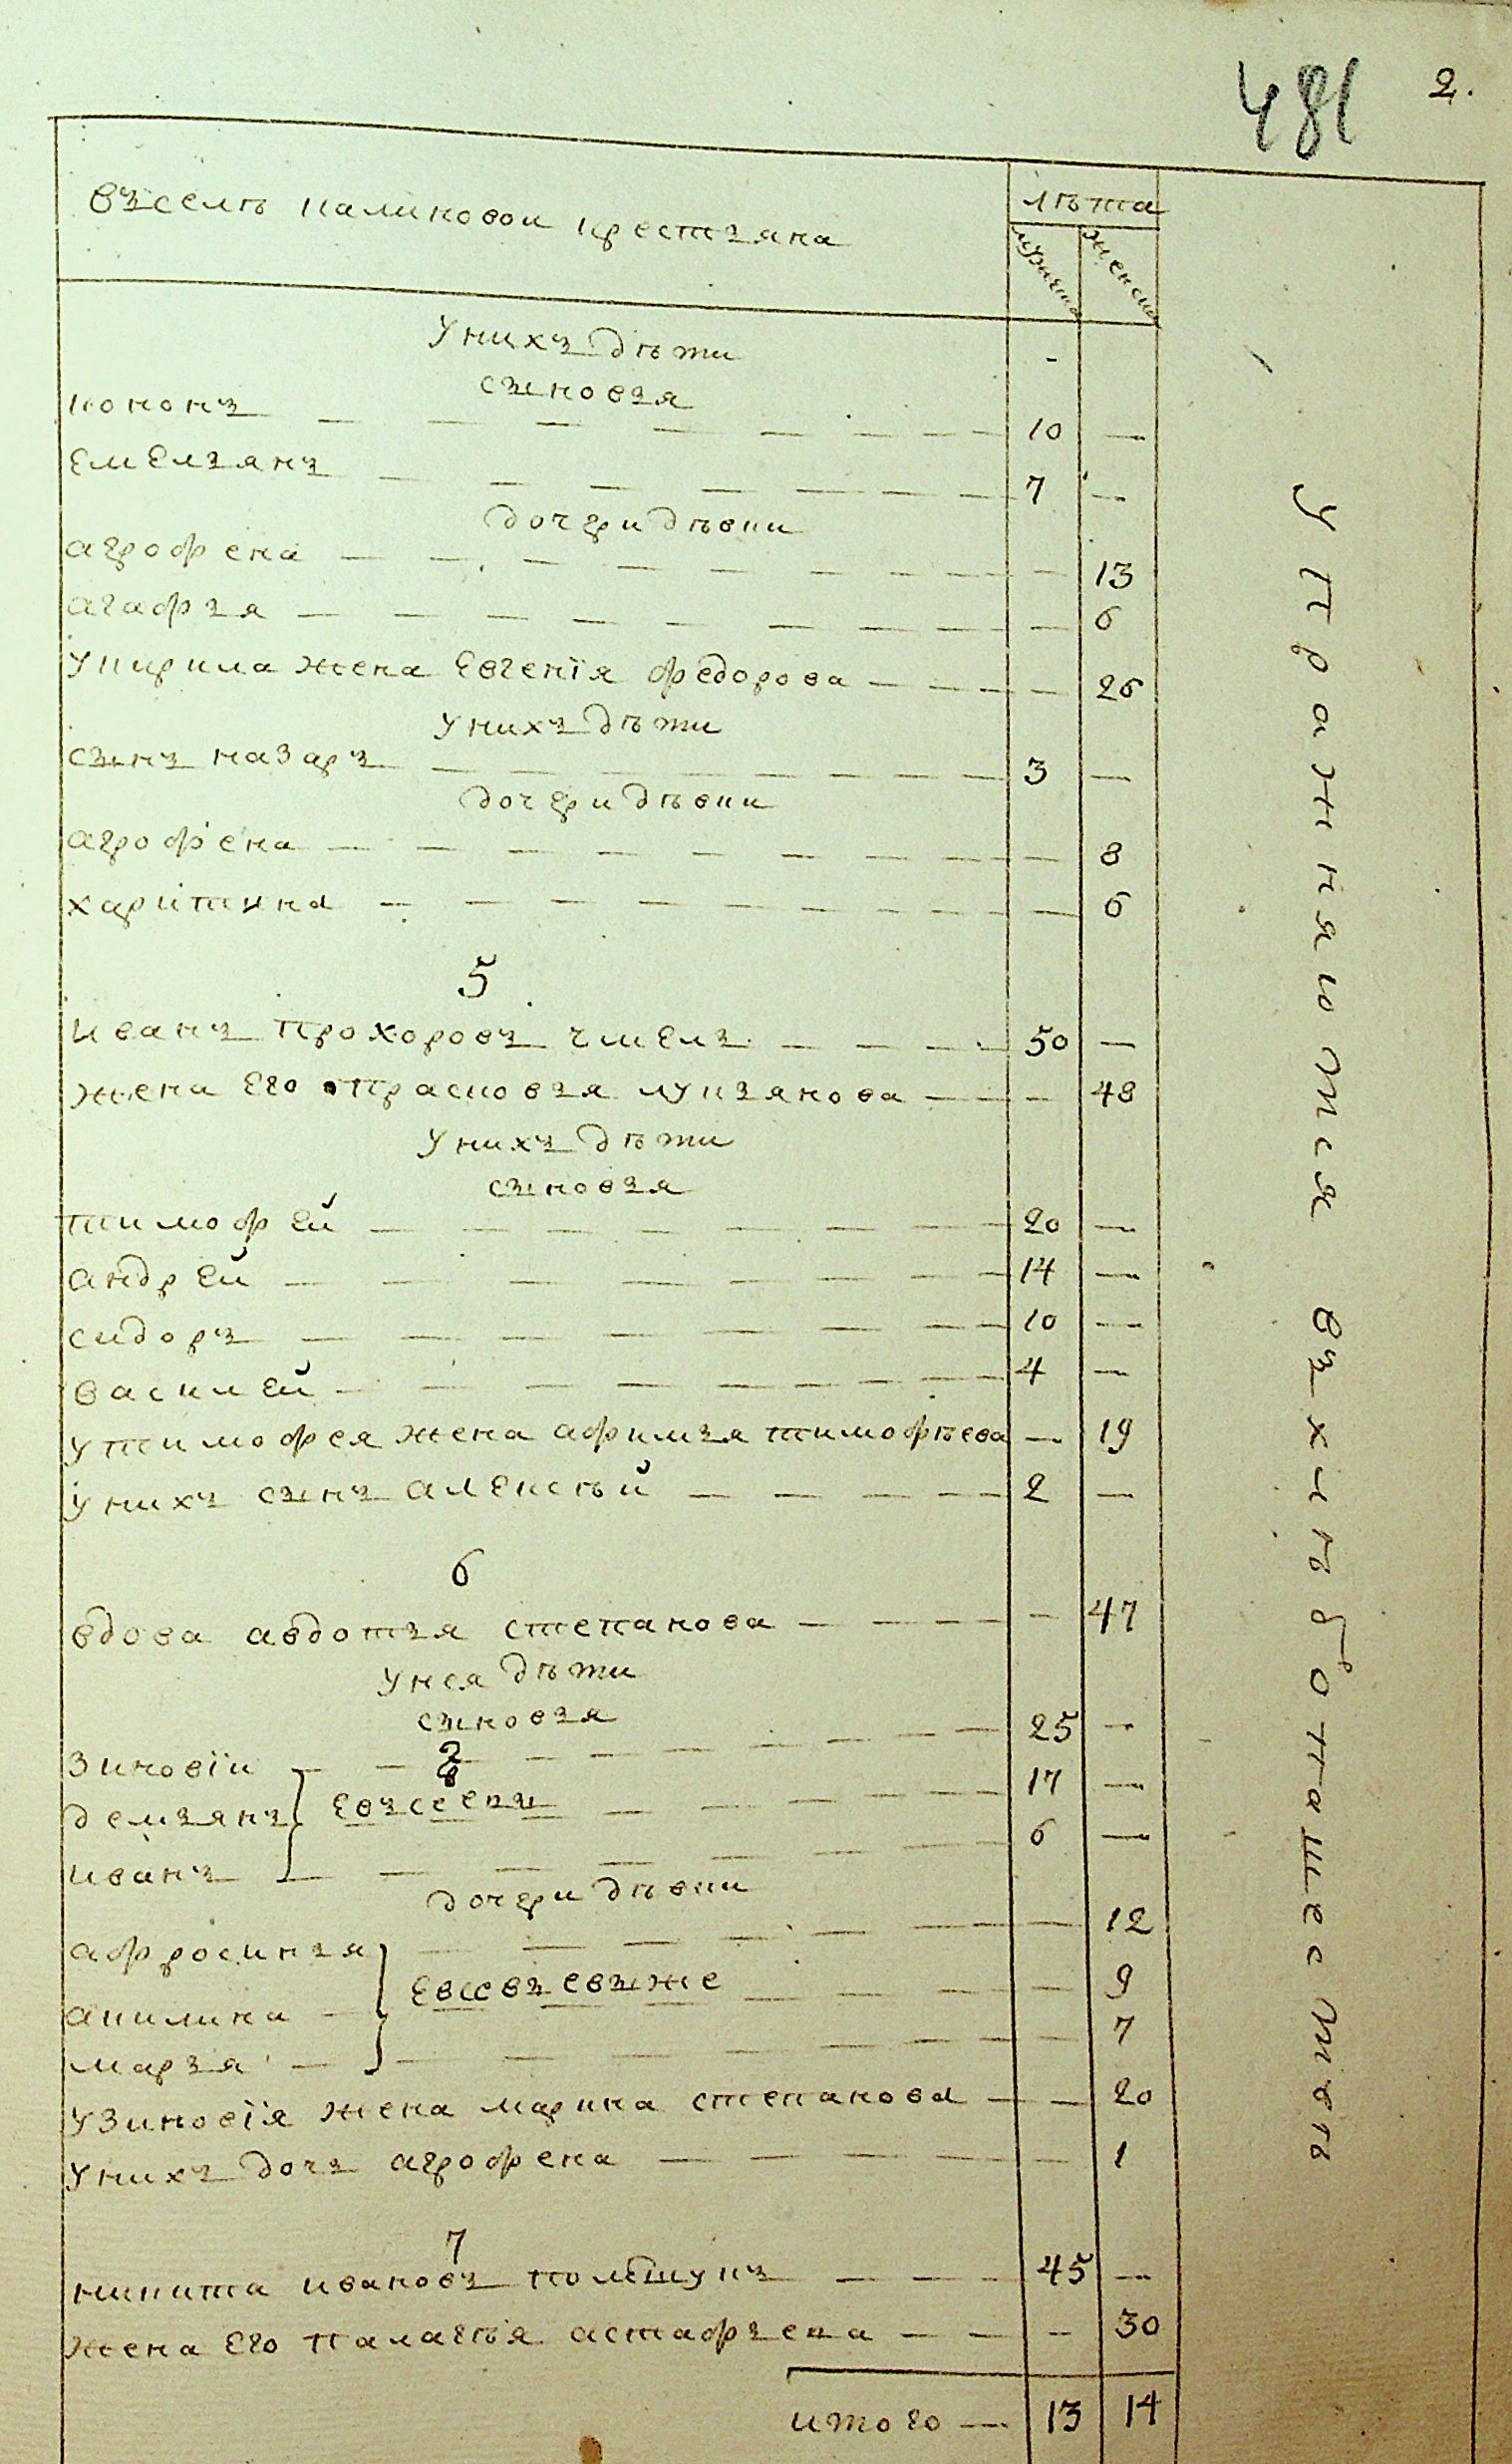 481 2.
въселѣ калиновои крестьяна
лѣта
мужеска
женска
Унихъ дѣти -
сыновья
кононъ — 10 —
емельянъ — 7 —
дочери дѣвки
агрофена — — 13
агафья — — 6
Укирила жена Евгенїя федорова — — 26
Унихъ дѣти
сынъ назаръ — 3 —
дочери дѣвки
агрофена — — 8
харитина — — 6
5
иванъ прохоровъ чмель — 50 —
жена его прасковья лукьянова — — 48
Унихъ дѣти
сыновья
тимофей — 20 —
андрей — 14 —
сидоръ — 10 —
василей — 4 —
Утимофея жена афимья тимофѣева — 19
Унихъ сынъ алексѣй — 2 —
6
вдова авдотья степанова — — 47
Унея дѣти
сыновья
зиновїи — 25 —
демьянъ — 17 —
иванъ — 6 —
дочери дѣвки
афросинья — — 12
акилина — — 9
марья — — 7
Узиновїя жена марина степанова — — 20
Унихъ дочь агрофена — — 1
7
никита ивановъ — 45 —
жена его палагѣя астафьева — — 30
итого — 13 14
Упражняются въ хлѣбопашестве